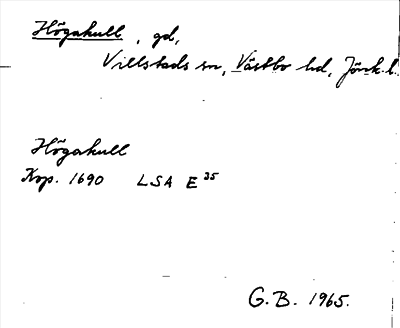 Högakull, gd,
Villstads sn, Västbo hd, Jönk. l.
Högakull
Kop. 1690 LSA E 35
G.B. 1965.